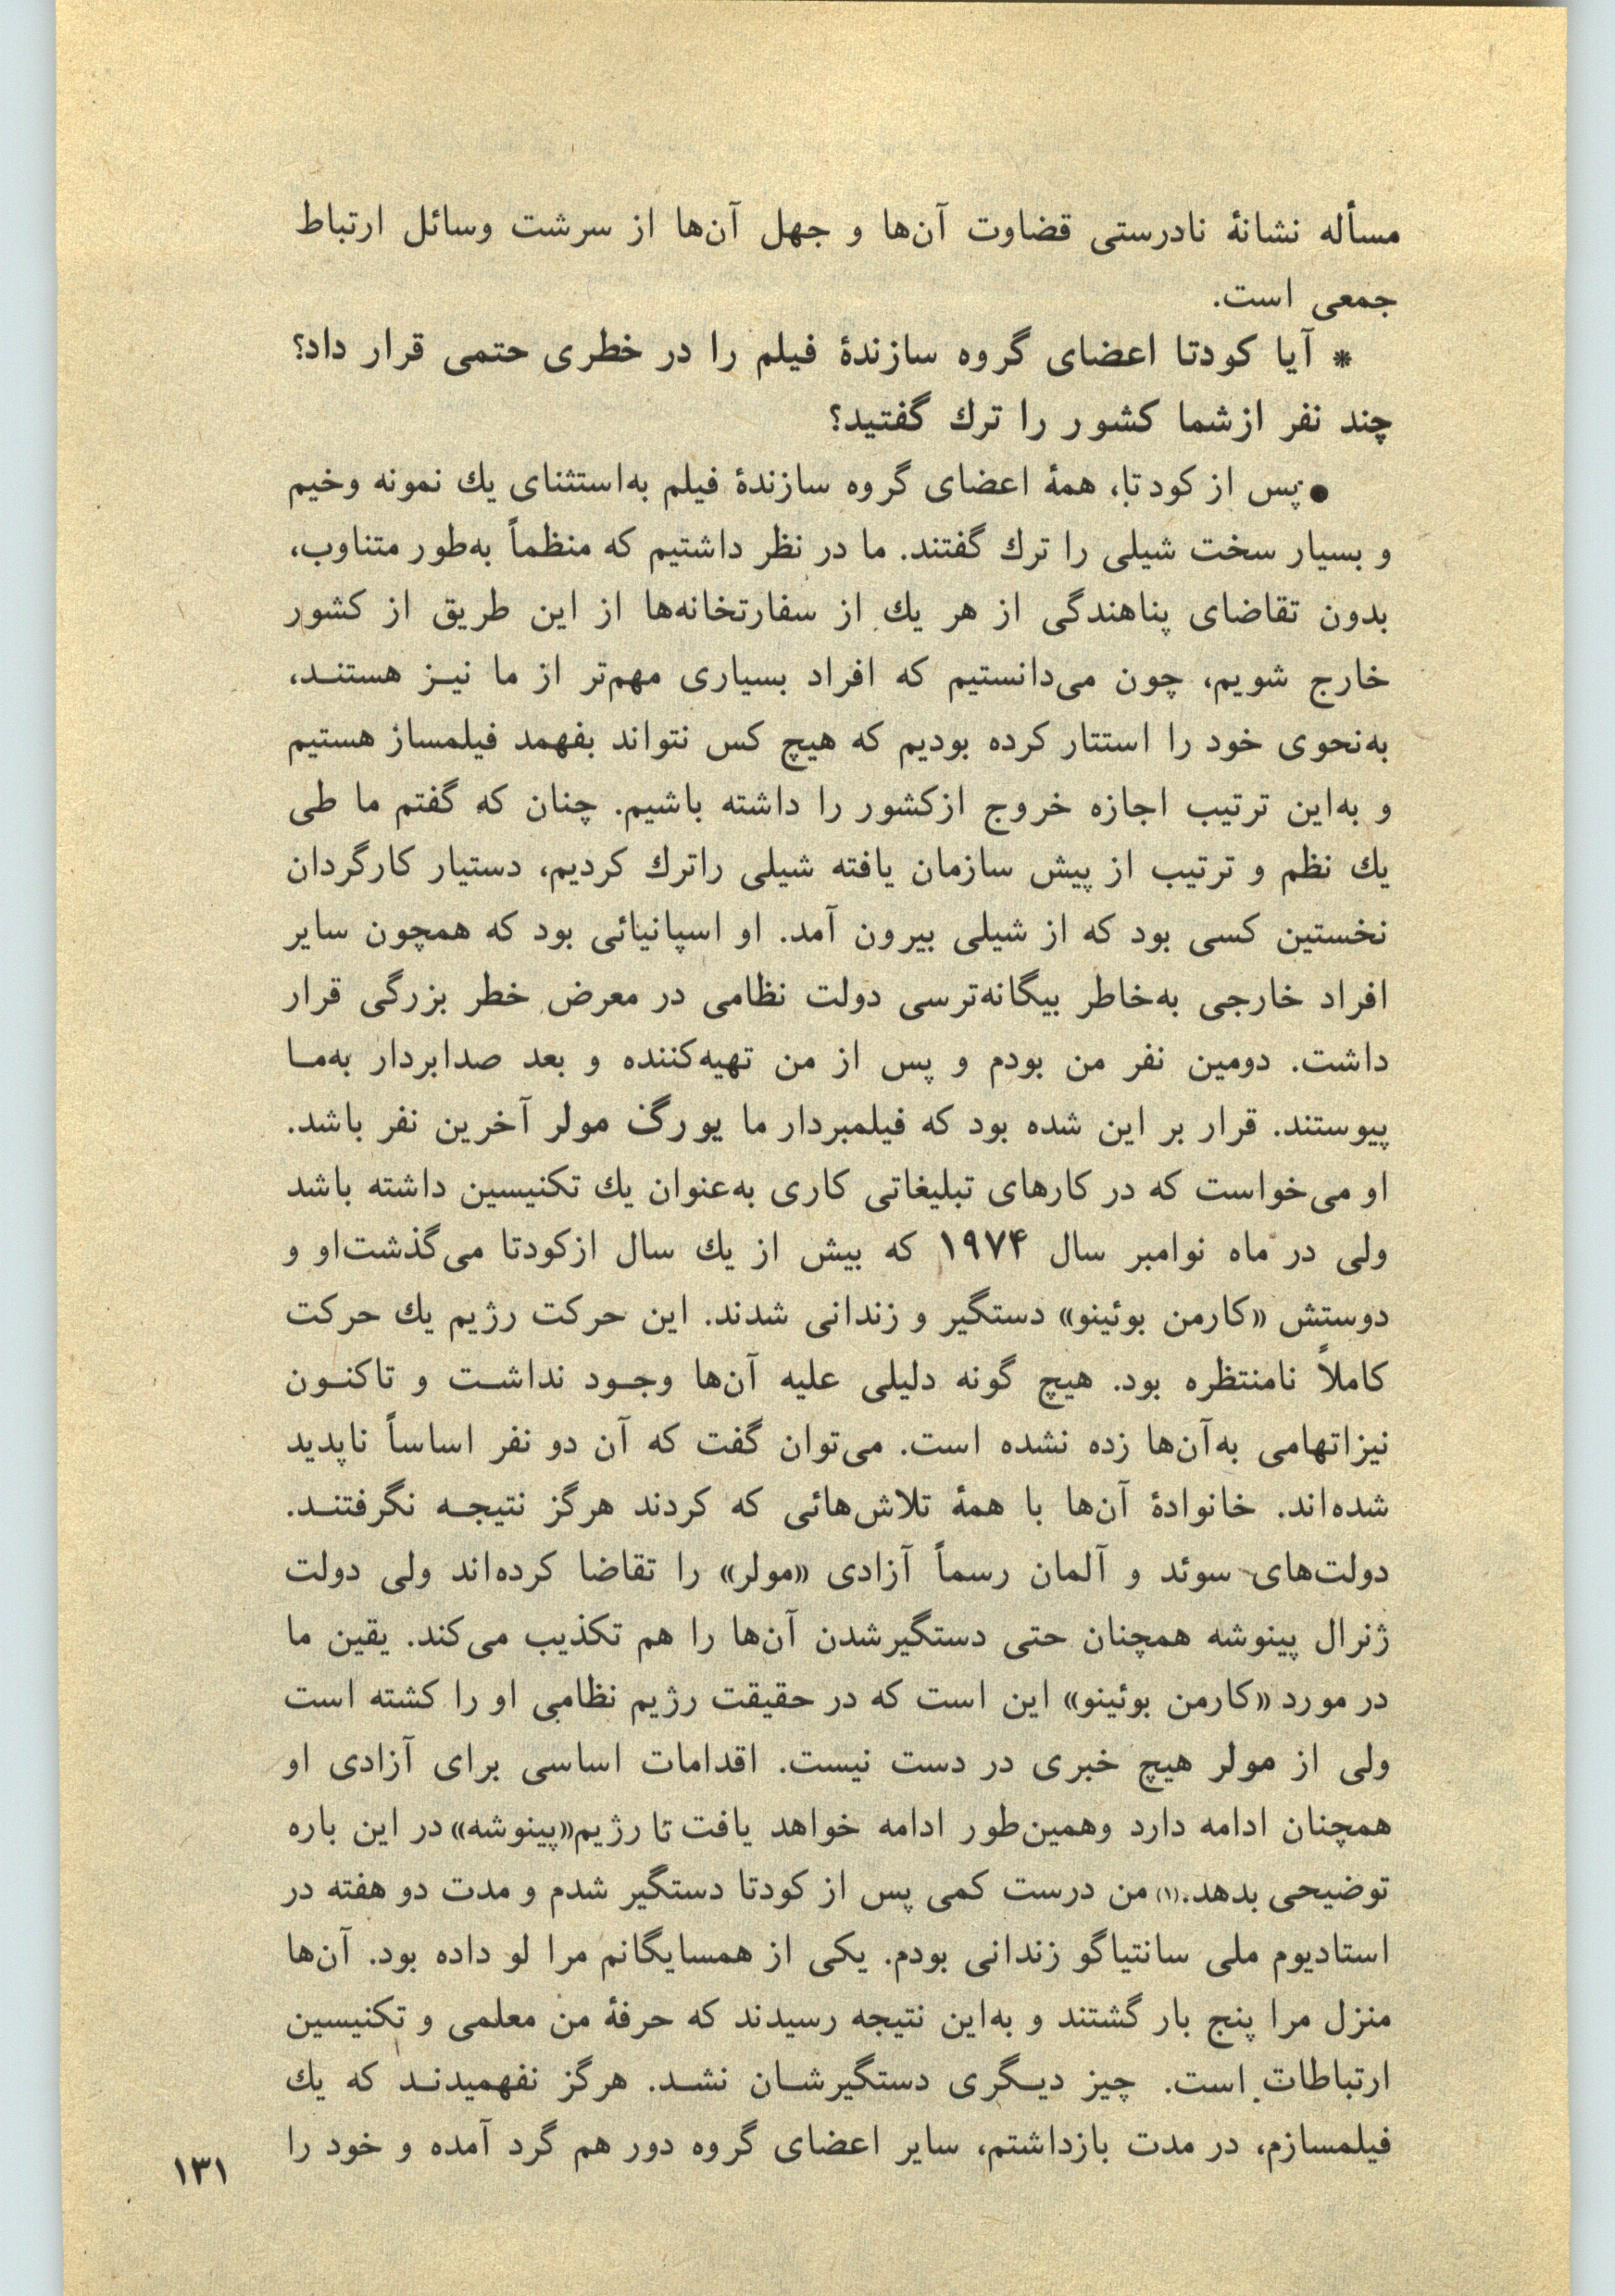 مسأله نشانهٔ نادرستی قضاوت آن‌ها و جهل آن‌ها از سرشت وسائل ارتباط
جمعی است.
* آیا کودتا اعضای گروه سازندهٔ فیلم را در خطری حتمی قرار داد؟
چند نفر ازشما کشور را ترك گفتید؟
● پس از کودتا، همهٔ اعضای گروه سازندهٔ فیلم به‌استثنای یك نمونه وخیم
و بسیار سخت شیلی را ترك گفتند. ما در نظر داشتیم که منظماً به‌طور متناوب،
بدون تقاضای پناهندگی از هر یك از سفارتخانه‌ها از این طریق از کشور
خارج شویم، چون می‌دانستیم که افراد بسیاری مهم‌تر از ما نیـز هستنـد،
به‌نحوی خود را استتار کرده بودیم که هیچ کس نتواند بفهمد فیلمساز هستیم
و به‌این ترتیب اجازه خروج ازکشور را داشته باشیم. چنان که گفتم ما طی
یك نظم و ترتیب از پیش سازمان یافته شیلی راترك کردیم، دستیار کارگردان
نخستین کسی بود که از شیلی بیرون آمد. او اسپانیائی بود که همچون سایر
افراد خارجی به‌خاطر بیگانه‌ترسی دولت نظامی در معرض خطر بزرگی قرار
داشت. دومین نفر من بودم و پس از من تهیه‌کننده و بعد صدابردار به‌مـا
پیوستند. قرار بر این شده بود که فیلمبردار ما یورگن مولر آخرین نفر باشد.
او می‌خواست که در کارهای تبلیغاتی کاری به‌عنوان یك تکنیسین داشته باشد
ولی در ماه نوامبر سال ۱۹۷۴ که بیش از یك سال ازکودتا می‌گذشت‌او و
دوستش «کارمن بوئینو» دستگیر و زندانی شدند. این حرکت رژیم یك حرکت
کاملاً نامنتظره بود. هیچ گونه دلیلی علیه آن‌ها وجـود نداشـت و تاکنـون
نیزاتهامی به‌آن‌ها زده نشده است. می‌توان گفت که آن دو نفر اساساً ناپدید
شده‌اند. خانوادهٔ آن‌ها با همهٔ تلاش‌هائی که کردند هرگز نتیجـه نگرفتنـد.
دولت‌های سوئد و آلمان رسماً آزادی «مولر» را تقاضا کرده‌اند ولی دولت
ژنرال پینوشه همچنان حتی دستگیرشدن آن‌ها را هم تکذیب می‌کند. یقین ما
در مورد «کارمن بوئینو» این است که در حقیقت رژیم نظامی او را کشته است
ولی از مولر هیچ خبری در دست نیست. اقدامات اساسی برای آزادی او
همچنان ادامه دارد وهمین‌طور ادامه خواهد یافت تا رژیم«پینوشه» در این باره
توضیحی بدهد.(۱) من درست کمی پس از کودتا دستگیر شدم و مدت دو هفته در
استادیوم ملی سانتیاگو زندانی بودم. یکی از همسایگانم مرا لو داده بود. آن‌ها
منزل مرا پنج بار گشتند و به‌این نتیجه رسیدند که حرفهٔ من معلمی و تکنیسین
ارتباطات است. چیز دیـگری دستگیرشـان نشـد. هرگز نفهمیدنـد که یك
فیلمسازم، در مدت بازداشتم، سایر اعضای گروه دور هم گرد آمده و خود را
۱۳۱